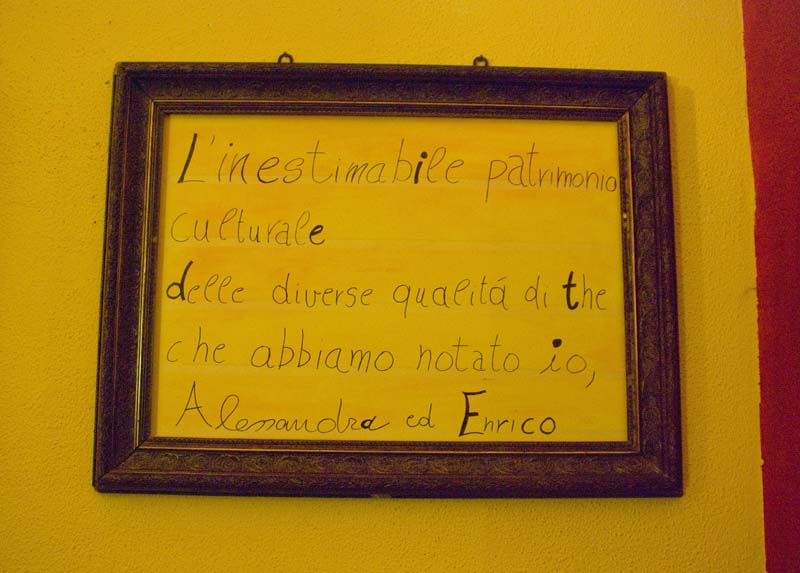 L'inestimabile patrimonio
culturale
delle diverse qualitá di the
che abbiamo notato io,
Alessandra ed Enrico